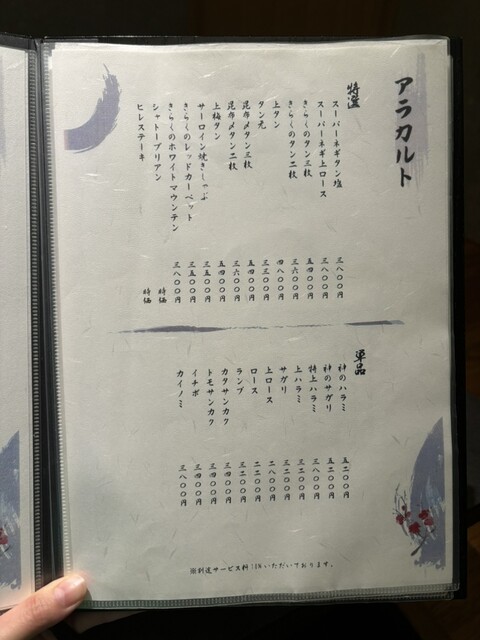 アラカルト
特選
スーパーネギタン塩 三八〇〇円
スーパーネギ上ロース 三八〇〇円
きらくのタン三枚 五四〇〇円
きらくのタン二枚 三六〇〇円
上タン 四八〇〇円
タン元 三三〇〇円
昆布〆タン三枚 五四〇〇円
昆布〆タン二枚 三六〇〇円
上梅タン 五四〇〇円
サーロイン焼きしゃぶ 三五〇〇円
きらくのレッドカーペット 三五〇〇円
きらくのホワイトマウンテン 三八〇〇円
シャトーブリアン 時価
ヒレステーキ 時価
単品
神のハラミ 五二〇〇円
神のサガリ 五二〇〇円
特上ハラミ 三八〇〇円
上ハラミ 三二〇〇円
サガリ 三二〇〇円
上ロース 二八〇〇円
ロース 二二〇〇円
ランプ 三二〇〇円
カタサンカク 三四〇〇円
トモサンカク 三四〇〇円
イチボ 三四〇〇円
カイノミ 三八〇〇円
※別途サービス料10%いただいております。